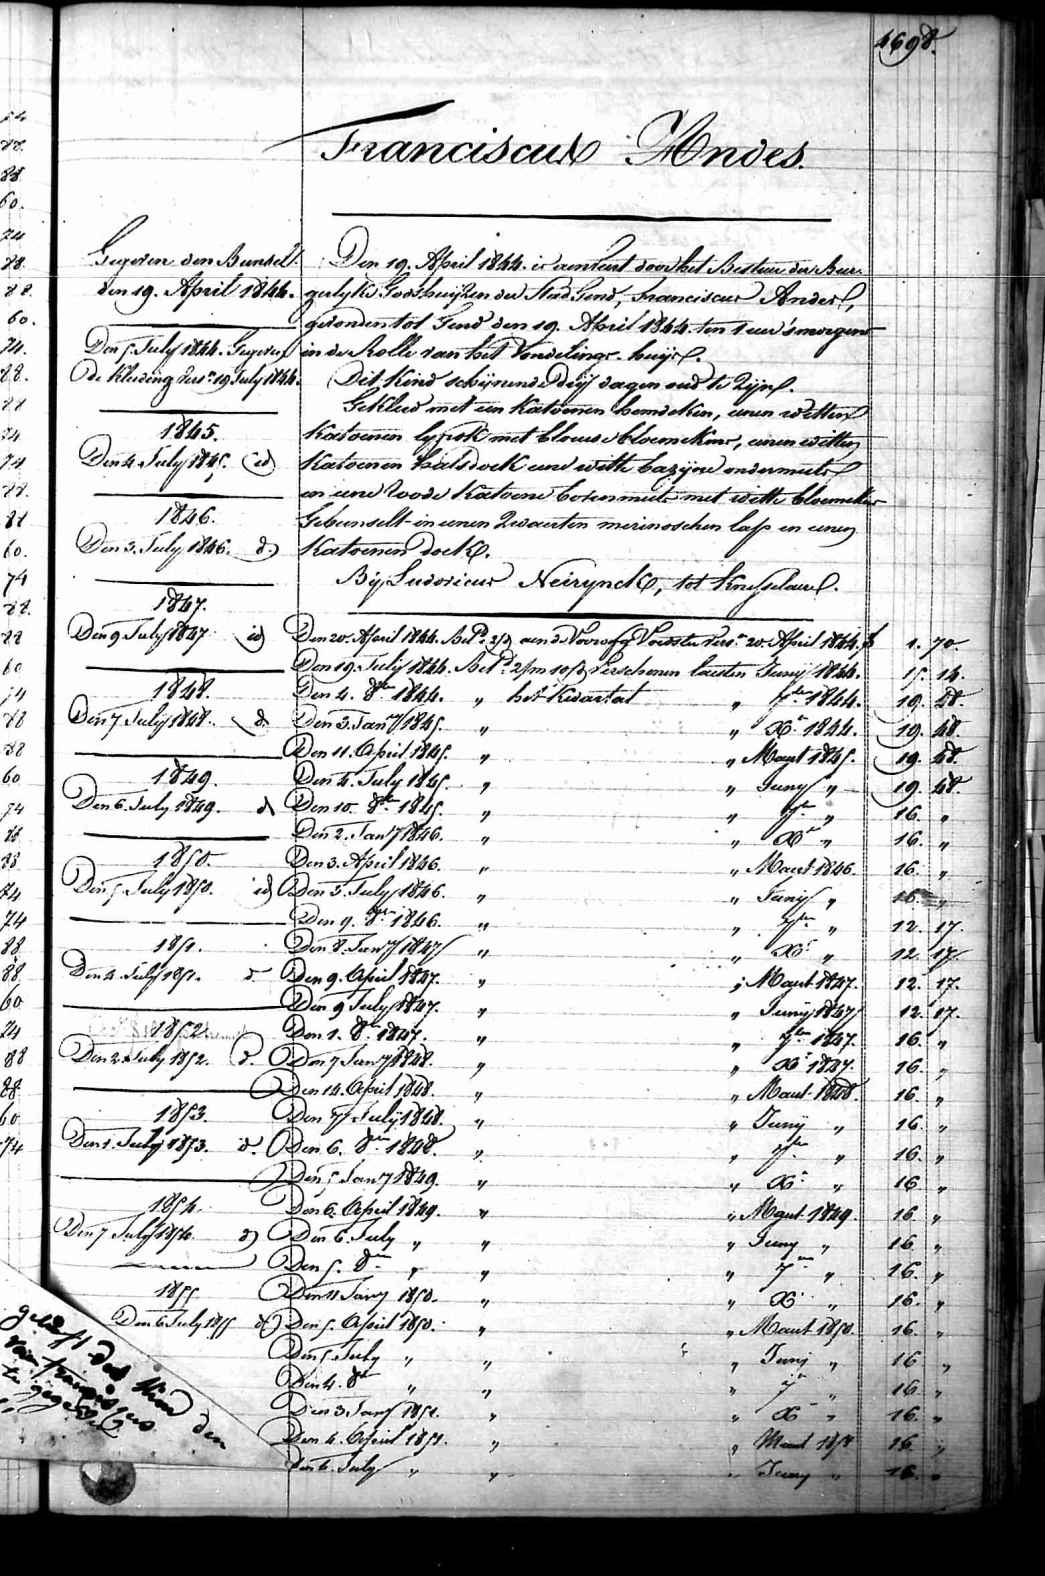 4698.
Franciscus Andes.
Gegeven den Bundsel
den 19. April 1844.
Den 5 July 1844. Gegeven
de Kleding Vers. 19 July 1844.
1845.
Den 4 July 1845. id
1846.
Den 3. July 1846. d.
1847.
Den 9 July 1847 id
1848.
Den 7 July 1848. d.
1849.
Den 6 July 1849. d
1850.
Den 5 July 1850. id
1851.
Den 4 July 1851. d
1852
Den 2 July 1852. d.
1853.
Den 1. July 1853. d.
1854.
Den 7 July 1854. d
1855
Den 6 July 1855 d
Den 19. April 1844. is aenveert door het Bestuur der Bur-
gerlyke Godshuijzen der Stad Gend, Franciscus Andes,
gevonden tot Gend den 19. April 1844. ten 1 uer 's morgens
in de Rolle van het Vondelings-huijs.
Dit Kind schijnende drij dagen oud te Zijn.
Gekleed met een Katoenen hemdeken, eenen witten
Katoenen lyfrok met blouwe bloemekens, eenen witten
Katoenen halsdoek eene witte bazijne ondermuts
en eene Roode Katoene bovenmuts met witte bloemekens
Gebunselt in eenen Zwaerten merinoschen lap en eenen
Katoenen doek.
Bij Ludovicus Neirynck, tot Knesselaere.
Den 20. April 1844. Bet. 2/3 aen de Voorse Voedster Vers. 20. April 1844. f 1. 70.
Den 19. July 1844. Bet. 2/m 10/d verschenen lactten Junij 1844. 15. 14.
Den 4. 8ber 1844. " het Kwartal " 7ber 1844. 19. 48.
Den 3. Jany 1845. " " Xr 1844. 19. 48.
Den 11. April 1845. " " Maert 1845. 19. 48.
Den 4. July 1845. " " Juny " 19. 48.
Den 10. 8ber 1845. " " 7ber " 16. "
Den 2. Jany 1846. " " Xr " 16. "
Den 3. April 1846. " " Maert 1846. 16. "
Den 3. July 1846. " " Juny " 16. "
Den 9. 8ber 1846. " " 7ber " 12. 17.
Den 8. Jany 1847 " " Xr " 12. 17.
Den 9. April 1847. " " Maert 1847. 12. 17.
Den 9 July 1847. " " Juny 1847 12. 17.
Den 1. 8ber 1847. " " 7ber 1847. 16. "
Den 7 Jany 1848. " " Xr 1847. 16. "
Den 14. April 1848. " " Maert 1848. 16. "
Den 7 July 1848. " " Juny " 16. "
Den 6. 8ber 1848. " " 7ber " 16. "
Den 5 Jany 1849. " " Xr " 16 "
Den 6. April 1849. " " Maert 1849. 16. "
Den 6 July " " " Juny " 16 "
Den 5. 8ber " " " 7ber " 16. "
Den 11 Jany 1850. " " Xr " 16. "
Den 5. April 1850. " " Maert 1850. 16. "
Den 5 July " " " Juny " 16 "
Den 4. 8ber " " " 7ber " 16 "
Den 3. Jany 1851. " " Xr " 16. "
Den 4. April 1851. " " Maert 1851 16 "
Den 6. July " " " Juny " 16. "